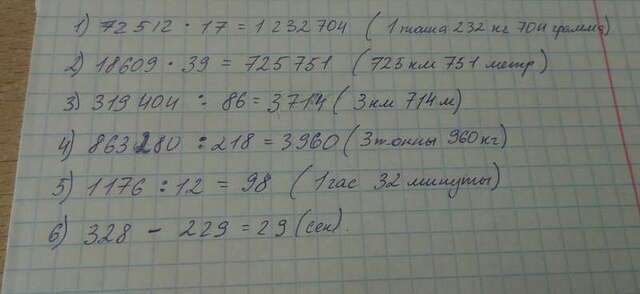 1) 72512 · 17 = 1232704 (1 тонна 232 кг 704 грамма)
2) 18609 · 39 = 725751 (725 км 751 метр)
3) 319404 ÷ 86 = 3714 (3 км 714 м)
4) 863280 : 218 = 3960 (3 тонны 960 кг)
5) 1176 : 12 = 98 (1 час 32 минуты)
6) 328 - 229 = 29 (сек).